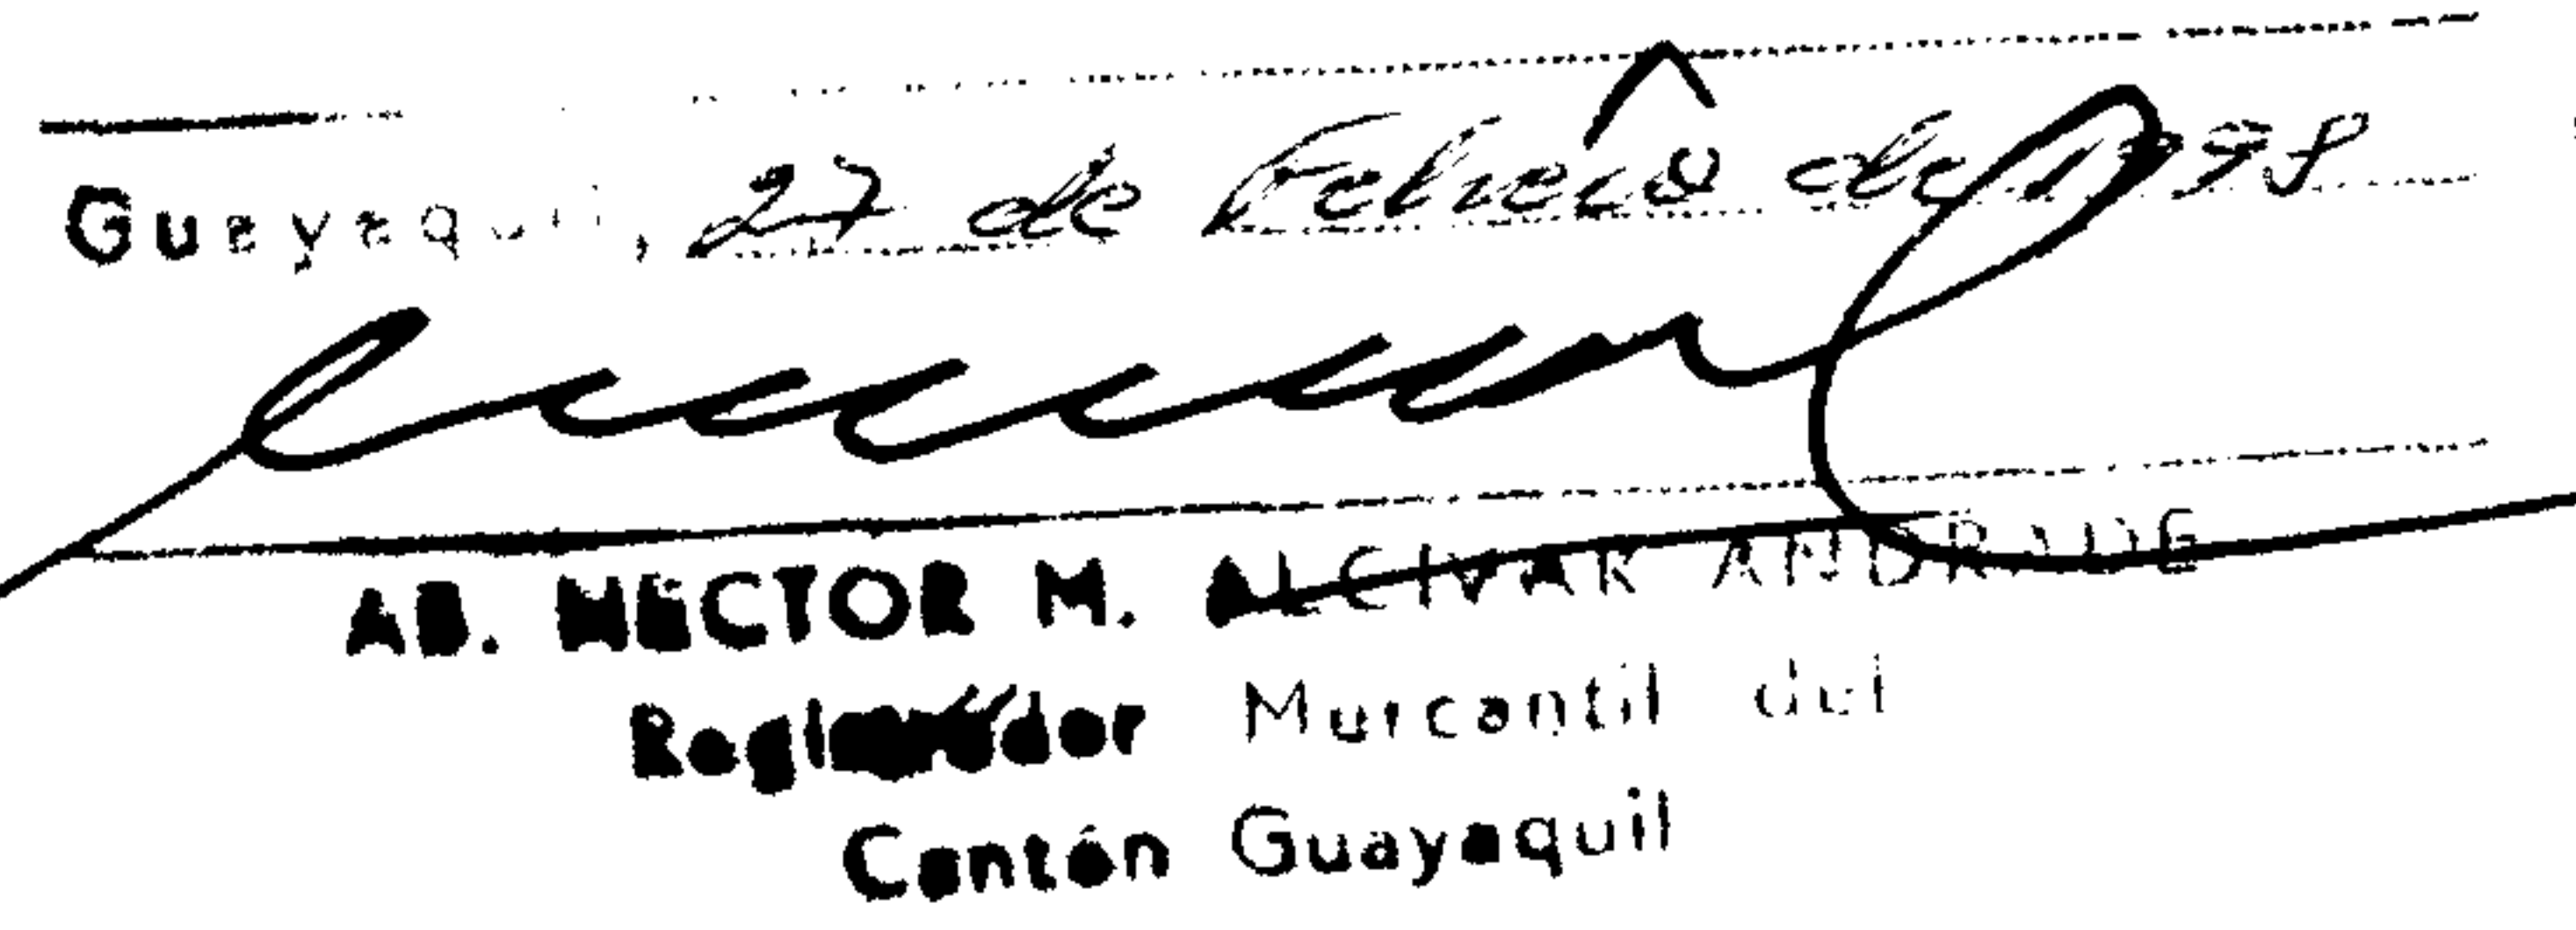 Guayaquil, 27 de Febrero de 1998
AB. HECTOR M. ALCIVAR ANDRADE
Registrador Mercantil del
Cantón Guayaquil